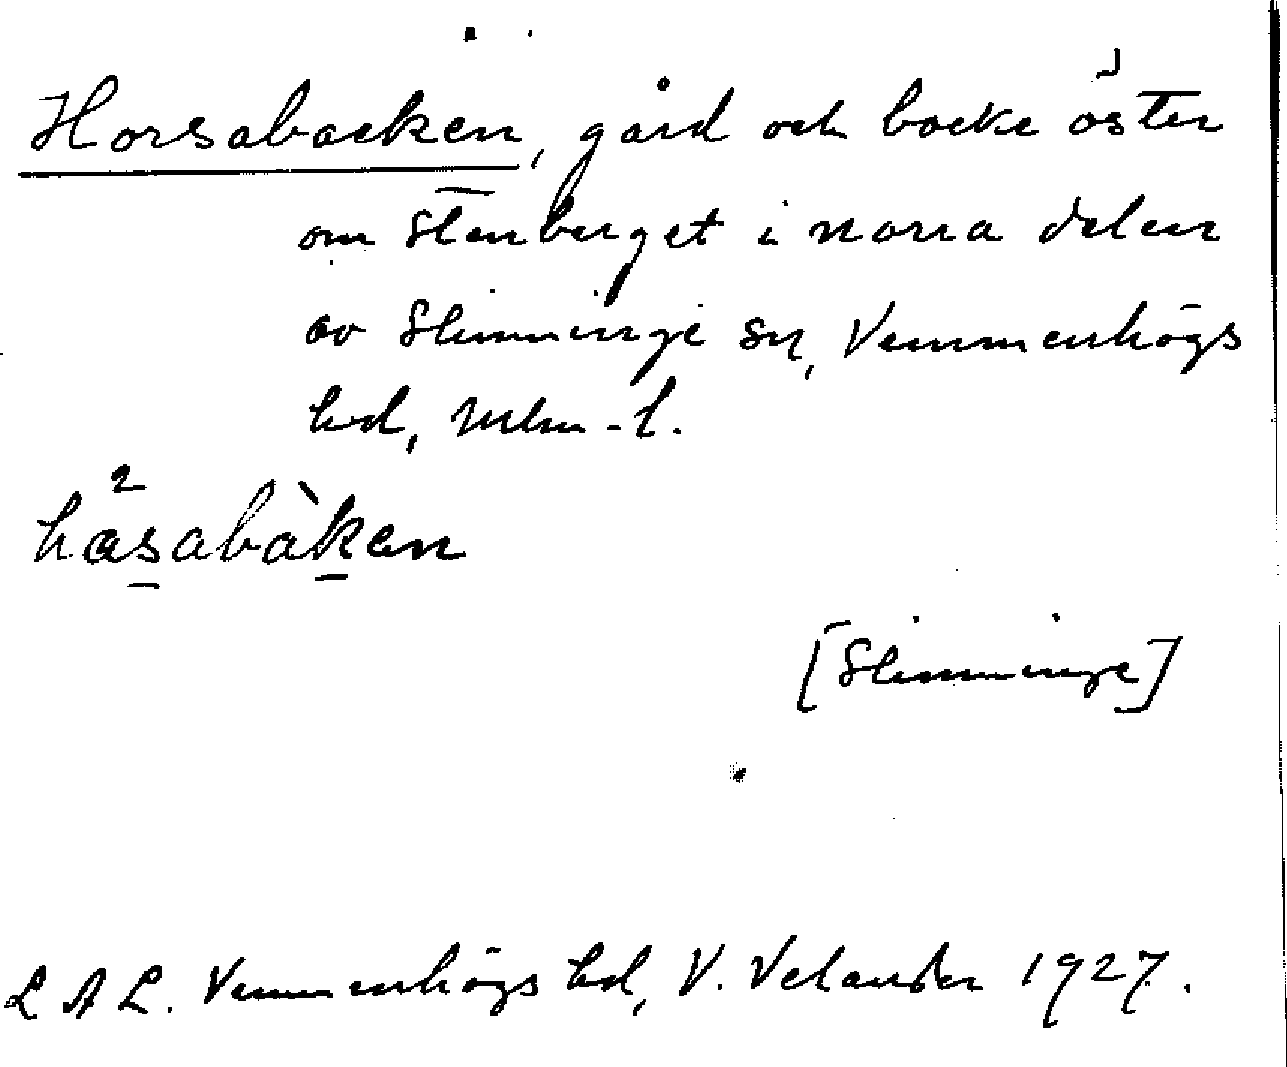 Horsabacken, gård och backe öster
om Stenberget i norra delen
av Slimminge sn, Vemmenhögs
hd, Mlm-l.
håsabàkan
[Slimminge]
L A L. Vemmenhögs hd, V. Velander 1927.